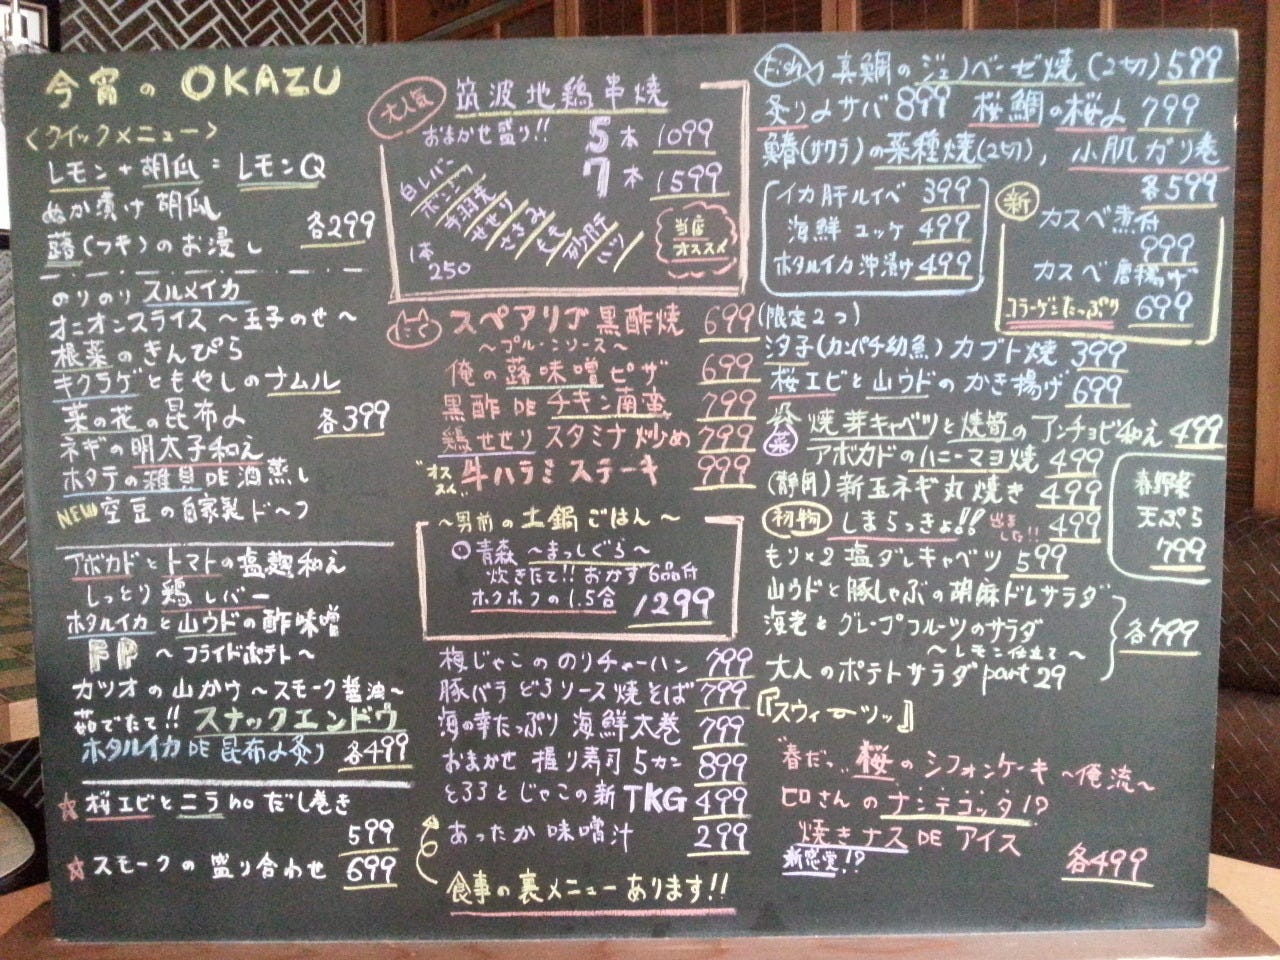 今宵の OKAZU
<クイックメニュー>
レモン+胡瓜=レモンQ
ぬか漬け胡瓜
蕗(フキ)のお浸し
各299
のりのりスルメイカ
オニオンスライス〜玉子のせ〜
根菜のきんぴら
キクラゲともやしのナムル
菜の花の昆布〆
各399
ネギの明太子和え
ホタテの雑貝DE酒蒸し
NEW 空豆の自家製ドーフ
アボカドとトマトの塩麹和え
しっとり鶏レバー
ホタルイカと山ウドの酢味噌
FP 〜フライドポテト〜
カツオの山かけ〜スモーク醤油〜
茹でたて!! スナックエンドウ
ホタルイカDE昆布〆炙り 各499
☆桜エビとニラnoだし巻き
599
☆スモークの盛り合わせ 699
大人気
筑波地鶏串焼
おまかせ盛り!! 5本 1099
7本 1599
白レバー
ボンジリ
手羽先
せせり
ささみ
もも
砂肝
ハツ
1本
250
当店
オススメ
にく
スペアリブ黒酢焼 699
〜プルーンソース〜
俺の蕗味噌ピザ 699
黒酢DEチキン南蛮 799
鶏せせりスタミナ炒め 799
"オススメ" 牛ハラミステーキ 999
〜男前の土鍋ごはん〜
青森〜まっしぐら〜
炊きたて!! おかず6品付
ホクホクの1.5合 1299
梅じゃこののりチャーハン 799
豚バラどろソース焼そば 799
海の幸たっぷり海鮮太巻 799
おまかせ握り寿司5カン 899
とろろとじゃこの新TKG 499
あったか味噌汁 299
食事の裏メニューあります!!
Fish 真鯛のジェノベーゼ焼(2切) 599
炙り〆サバ 899 桜鯛の桜〆 799
鰆(サワラ)の菜種焼(2切)、小肌ガリ巻
各599
イカ肝ルイベ 399
海鮮ユッケ 499
ホタルイカ沖漬け 499
新 カスベ煮付
999
カスベ唐揚げ
コラーゲンたっぷり 699
(限定2つ)
汐子(カンパチ幼魚)カブト焼 399
桜エビと山ウドのかき揚げ 699
菜 焼芽キャベツと焼筍のアンチョビ和え 499
アボカドのハニーマヨ焼 499
(静岡)新玉ネギ丸焼き 499
初物 しまらっきょ!! 出ました!! 499
もり×2塩ダレキャベツ 599
春野菜
天ぷら
799
山ウドと豚しゃぶの胡麻ドレサラダ
海老とグレープフルーツのサラダ
〜レモン仕立て〜
大人のポテトサラダpart29
各799
『スウィーツッ』
春だっ、桜のシフォンケーキ〜俺流〜
ヒロさんのナンテコッタ!?
焼きナスDEアイス
新感覚!?
各499